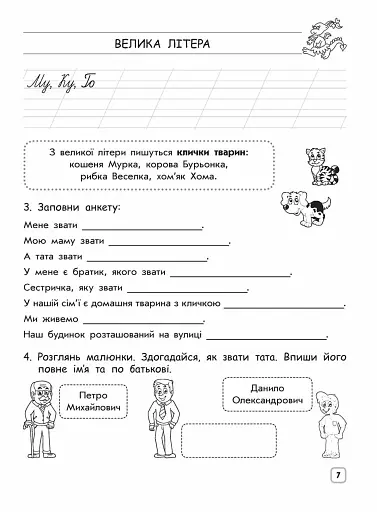 ВЕЛИКА ЛІТЕРА
Му, Ку, Го
З великої літери пишуться клички тварин:
кошеня Мурка, корова Бурьонка,
рибка Веселка, хом'як Хома.
3. Заповни анкету:
Мене звати .
Мою маму звати .
А тата звати .
У мене є братик, якого звати .
Сестричка, яку звати .
У нашій сім'ї є домашня тварина з кличкою .
Ми живемо .
Наш будинок розташований на вулиці .
4. Розглянь малюнки. Здогадайся, як звати тата. Впиши його
повне ім'я та по батькові.
Петро
Михайлович
Данило
Олександрович
7